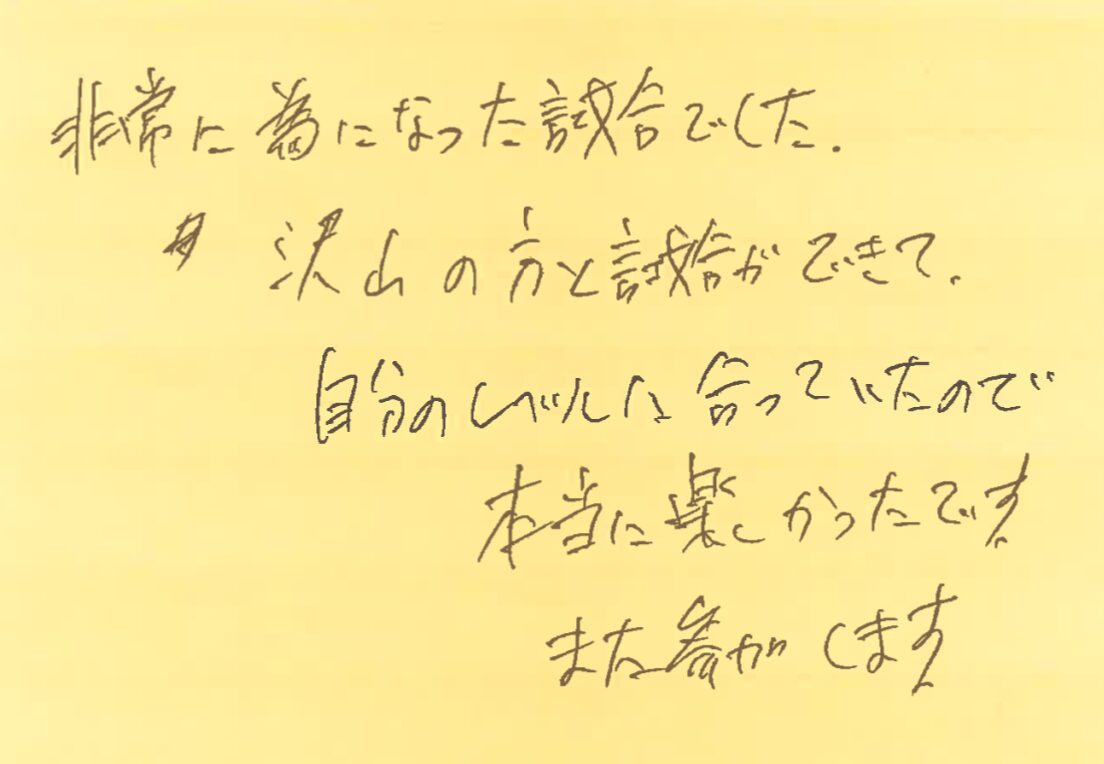 非常に為になった試合でした.
沢山の方と試合ができて.
自分のレベルに合っていたので
本当に楽しかったです!
また参加します